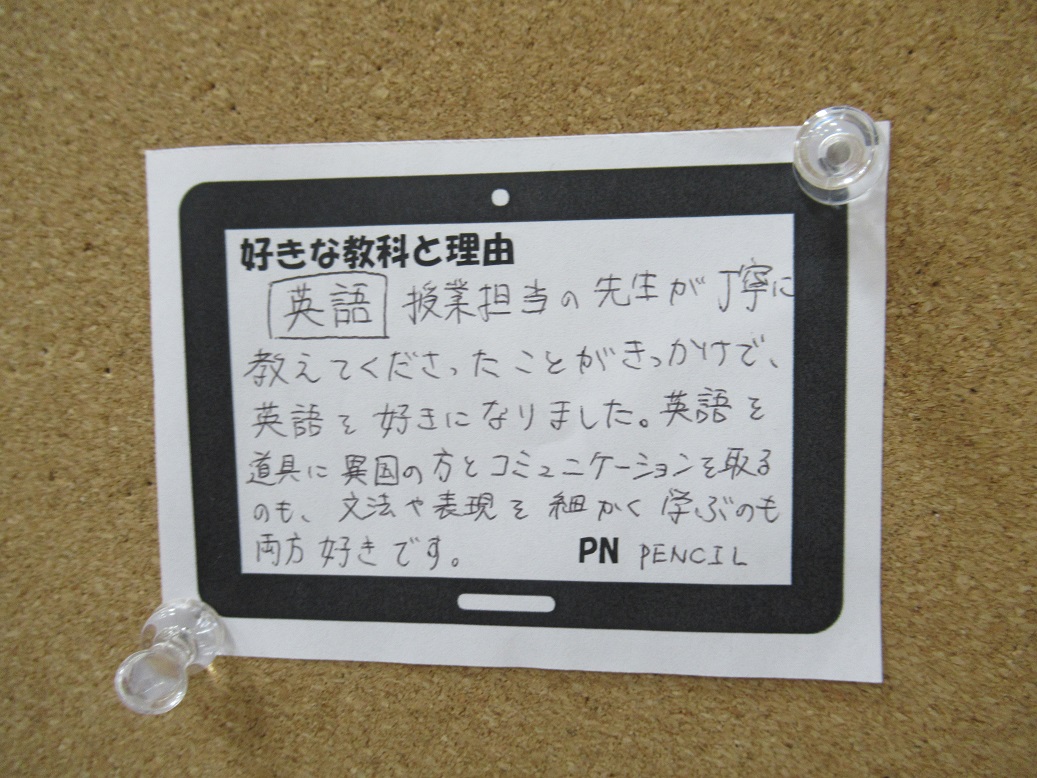 好きな教科と理由
英語 授業担当の先生が丁寧に
教えてくださったことがきっかけで、
英語を好きになりました。英語を
道具に異国の方とコミュニケーションを取る
のも、文法や表現を細かく学ぶのも
両方好きです。 PN PENCIL